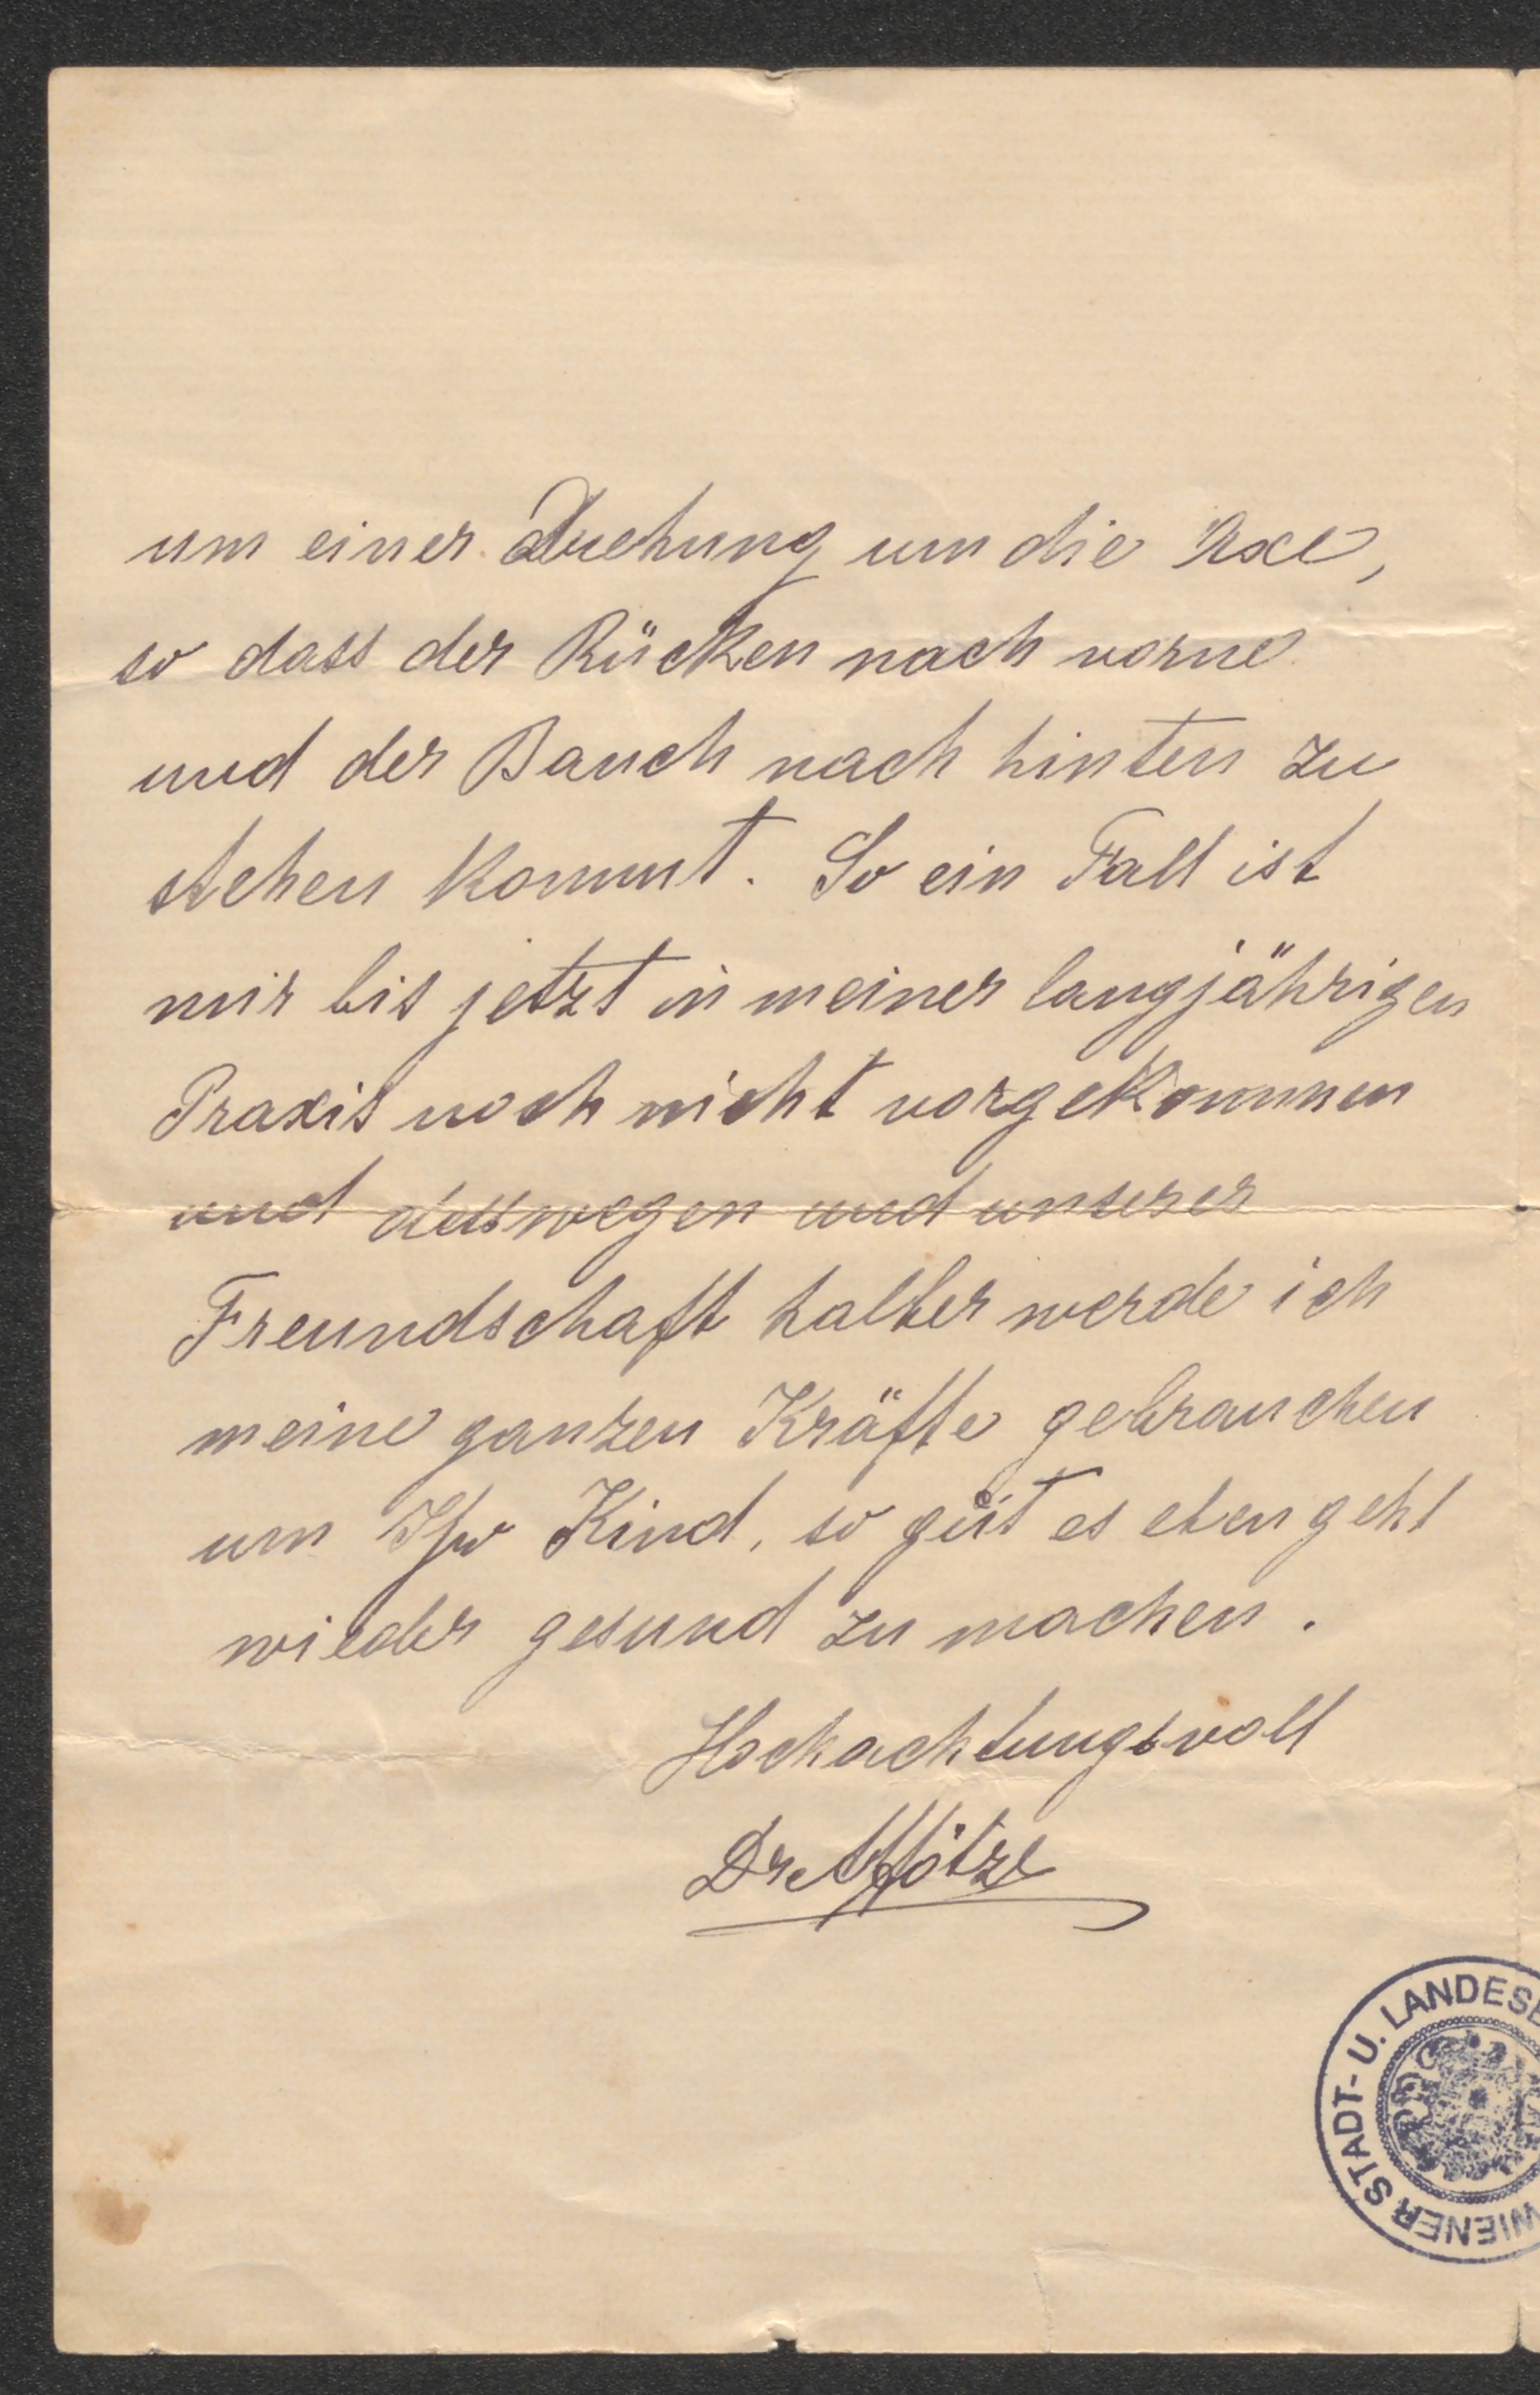 um einer Drehung um die Axe,
so dass der Rücken nach vorne
und der Bauch nach hinten zu
stehen kommt. So ein Fall ist
mir bis jetzt in meiner langjährigen
Praxis noch nicht vorgekommen
und desswegen und unserer
Freundschaft halber werde ich
meine ganzen Kräfte gebrauchen
um Ihr Kind, so gut es eben geht
wieder gesund zu machen.
Hochachtungsvoll
Dr
WIENER STADT- U. LANDES